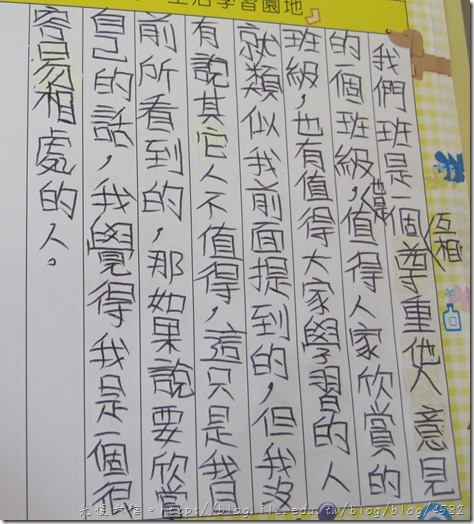 生活學習園地
我們班是一個互相尊重他人意見
的一個班級，也是值得人家欣賞的
班級，也有值得大家學習的人
就類似我前面提到的，但我沒
有說其它人不值得，這只是我目
前所看到的，那如果說要欣賞
自己的話，我覺得我是一個很
容易相處的人。
光復六信。http://blog.ilc.edu.tw/blog/blog/4582